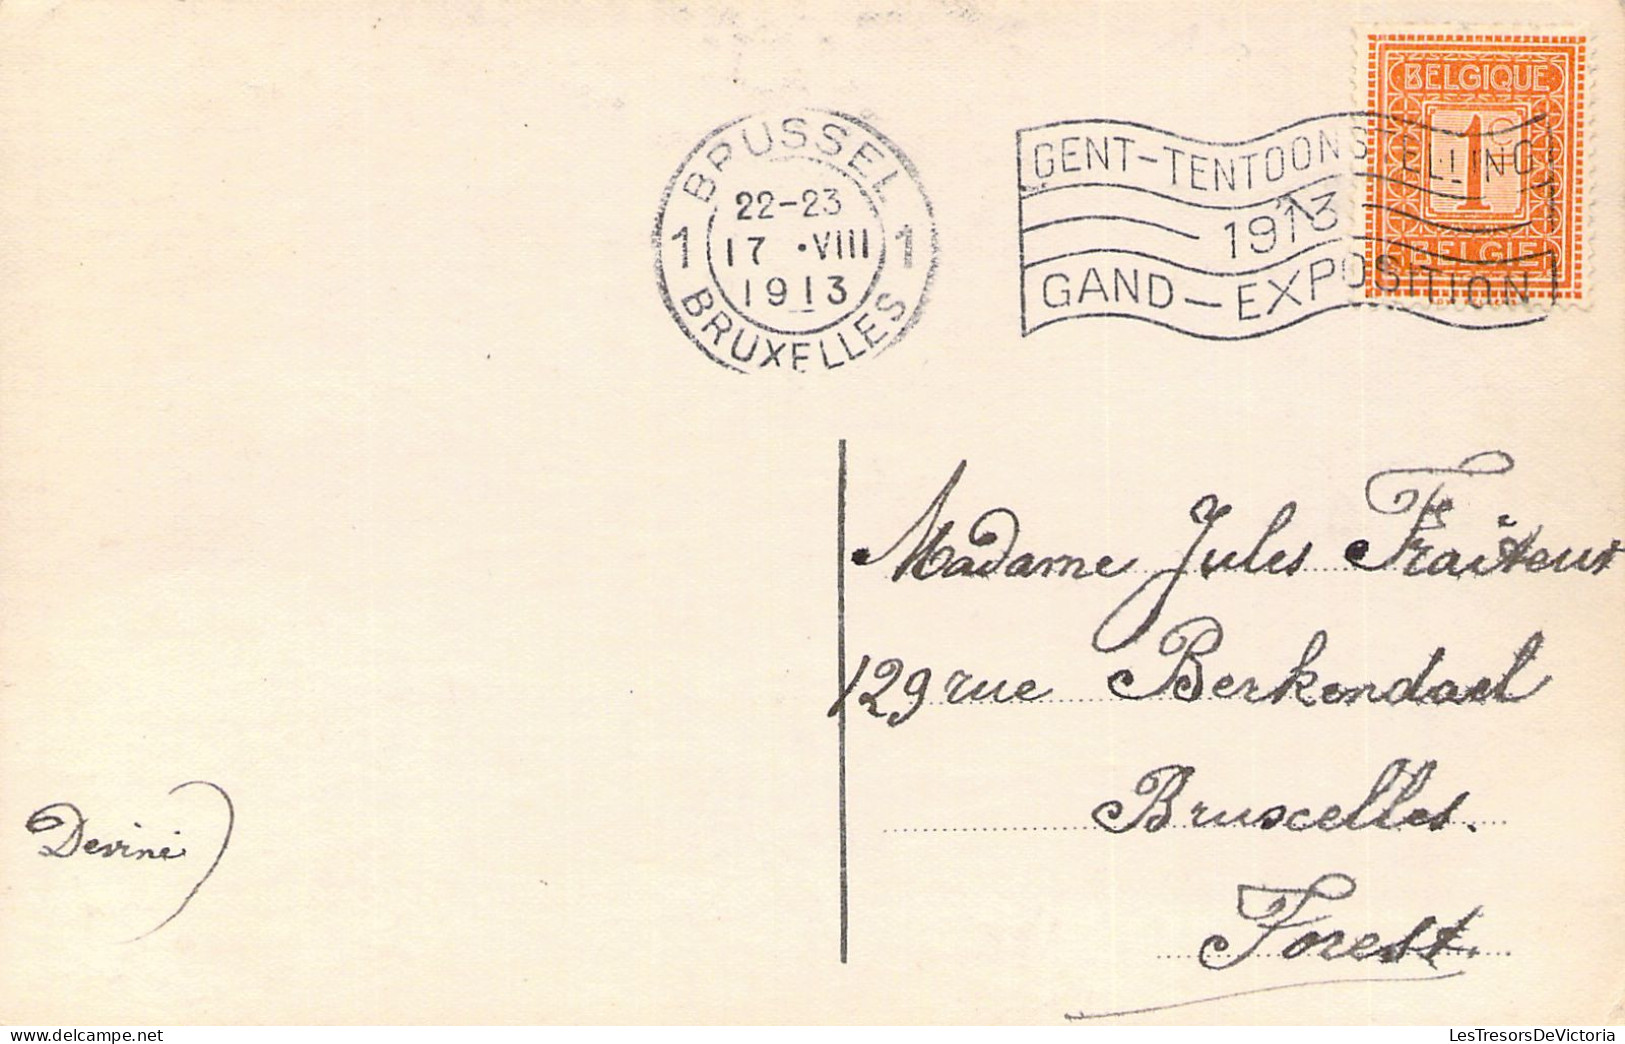 BRUSSEL
1 22-23 1
17 •VIII
1913
BRUXELLES
GENT-TENTOONSTELLING
1913
GAND-EXPOSITION
BELGIQUE
1c
BELGIË
Madame Jules
129 rue Berkendael
Bruxelles.
Forest.
LesTresorsDeVictoria